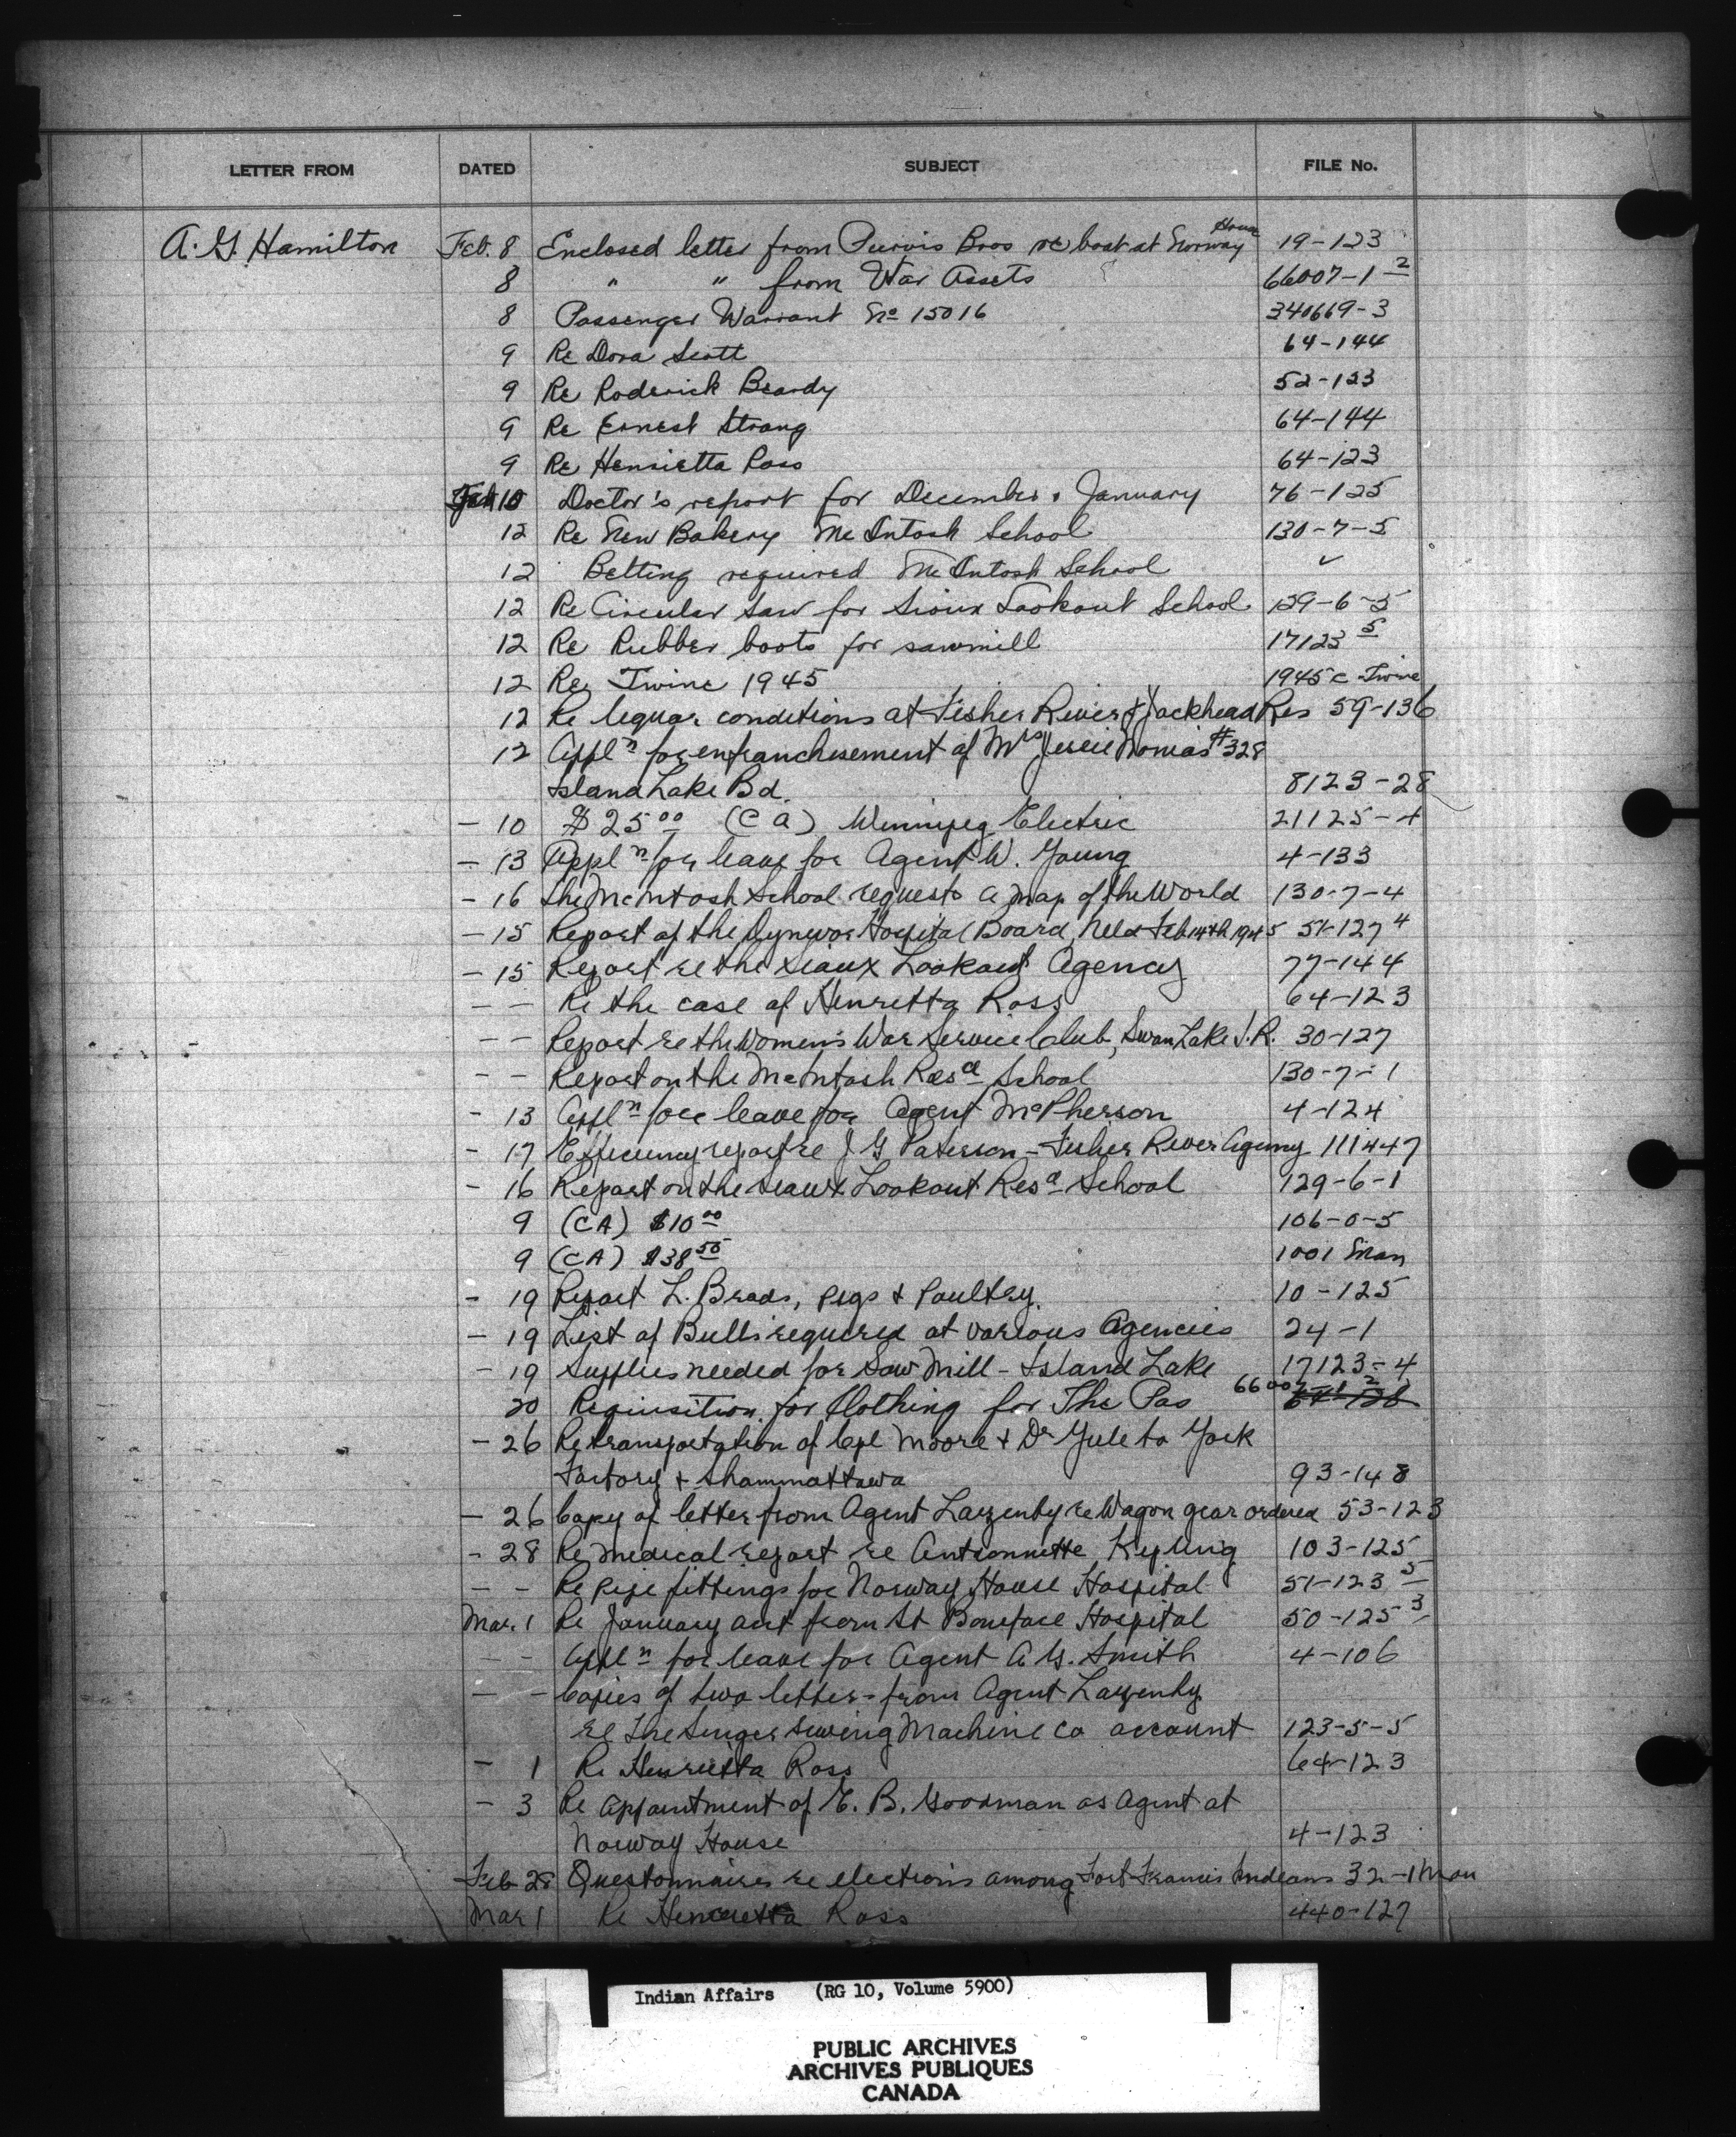 LETTER FROM DATED SUBJECT FILE No.
A. G. Hamilton Feb. 8 Enclosed letter from Purvis Bros re boat at Norway House 19-123
8 " " from War Assets 66007-1-2
8 Passenger Warrant No 15016 340669-3
9 Re Dora Scott 64-144
9 Re Roderick Beardy 52-123
9 Re Ernest Strang 64-144
9 Re Henrietta Ross 64-123
Feb 10 Doctor's report for December & January 76-125
12 Re New Bakery McIntosh School 130-7-5
12 Belting required McIntosh School ✓
12 Re Circular Saw for Sioux Lookout School 129-6-5
12 Re Rubber boots for sawmill 17123 5
12 Re Twine 1945 1945 c Twine
12 Re liquor conditions at Fisher River & Jackhead Res 59-136
12 Appln for enfranchisement of Mrs Jessie #328
Island Lake Bd. 8123-28
- 10 $25 00 (CA) Winnipeg Electric 21125-4
- 13 Appln for leave for Agent W. Young 4-133
- 16 The McIntosh School requests a map of the World 130-7-4
- 15 Report of the Dynevor Hospital Board, held Feb 14th 1945 51-127 4
- 15 Report re the Sioux Lookout Agency 77-144
- - Re the case of Henretta Ross 64-123
- - Report re the Women's War Service Club, Swan Lake I.R. 30-127
- - Report on the McIntosh Resd School 130-7-1
- 13 Appln for leave for Agent McPherson 4-124
- 17 Efficiency report re J G Paterson - Fisher River Agency 111447
- 16 Report on the Sioux Lookout Resd School 129-6-1
9 (CA) $10 00 106-0-5
9 (CA) $38 50 1001 Man
- 19 Report L. Brads, pigs & Poultry. 10-125
- 19 List of Bulls required at various Agencies 24-1
- 19 Supplies needed for Saw Mill - Island Lake 17123-4
20 Requisition for Clothing for The Pas 66007-1-2
- 26 Re transportation of Cpl Moore & Dr Yule to York
Factory & Shammattawa 93-148
- 26 Copy of letter from Agent Lazenby re Wagon gear ordered 53-123
- 28 Re medical report re Antionnette Kipling 103-125
- - Re pipe fittings for Norway House Hospital 51-123 5
Mar. 1 Re January acct from St Boniface Hospital 50-125 3
- - Appln for leave for Agent A G. Smith 4-106
- - Copies of two letters from Agent Lazenby
re The Singer Sewing Machine Co account 123-5-5
- 1 Re Henrietta Ross 64-123
- 3 Re appointment of E. B. Goodman as Agent at
Norway House 4-123
Feb 28 Questonnaires re elections among Fort Francis Indians 32-1 Man
Mar 1 Re Henrietta Ross 440-127
Indian Affairs (RG 10, Volume 5900)
PUBLIC ARCHIVES
ARCHIVES PUBLIQUES
CANADA